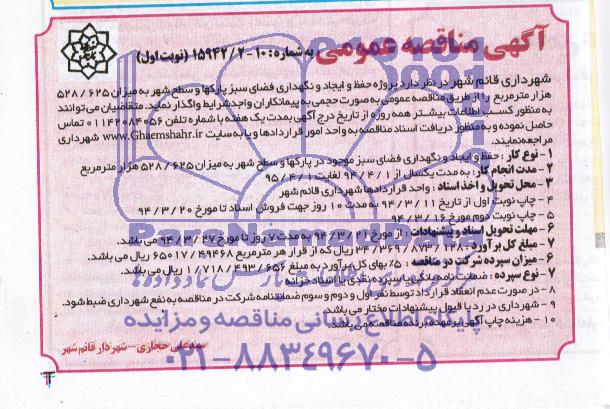 آگهی مناقصه عمومی به شماره: ۱۰-۱۵۹۴۲/۲ (نوبت اول)
شهرداری قائم شهر در نظر دارد پروژه حفظ و ایجاد و نگهداری فضای سبز پارکها و سطح شهر به میزان ۵۲۸/۶۲۵
هزار مترمربع را از طریق مناقصه عمومی به صورت حجمی به پیمانکاران واجد شرایط واگذار نماید. متقاضیان می توانند
به منظور کسب اطلاعات بیشتر همه روزه از تاریخ درج آگهی بمدت یک هفته با شماره تلفن ۰۱۱۴۲۰۸۴۰۵۶ تماس
حاصل نموده و به منظور دریافت اسناد مناقصه به واحد امور قراردادها و یا به سایت www.Ghaemshahr.ir شهرداری
مراجعه نمایند.
۱- نوع کار: حفظ و ایجاد و نگهداری فضای سبز موجود در پارکها و سطح شهر به میزان ۵۲۸/۶۲۵ هزار مترمربع
۲- مدت انجام کار: به مدت یکسال از ۹۴/۴/۱ لغایت ۹۵/۴/۱
۳- محل تحویل و اخذ اسناد: واحد قراردادها شهرداری قائم شهر
۴- چاپ نوبت اول از تاریخ ۹۴/۳/۱۱ به مدت ۱۰ روز جهت فروش اسناد تا مورخ ۹۴/۳/۲۰
۵- چاپ نوبت دوم مورخ ۹۴/۳/۱۶
۶- مهلت تحویل اسناد و پیشنهادات: از مورخ ۹۴/۳/۲۱ به مدت ۷ روز تا مورخ ۹۴/۳/۲۷ می باشد.
۷- مبلغ کل برآورد: ۳۴/۳۶۹/۸۷۳/۱۲۸ ریال که از قرار هر مترمربع ۶۵۰۱۷/۴۹۴۶۸ ریال می باشد.
۶- میزان سپرده شرکت در مناقصه: ۵٪ بهای کل برآورد به مبلغ ۱/۷۱۸/۴۹۳/۶۵۶ ریال می باشد.
۷- نوع سپرده: ضمانت نامه بانکی یا سپرده نقدی یا اسناد خزانه
۸- در صورت عدم انعقاد قرارداد توسط نفر اول و دوم و سوم ضمانتنامه شرکت در مناقصه به نفع شهرداری ضبط شود.
۹- شهرداری در رد یا قبول پیشنهادات مختار می باشد.
۱۰- هزینه چاپ آگهی بر عهده برنده مناقصه می باشد.
سید علی حجازی - شهردار قائم شهر
ParsNamadData
پایگاه اطلاع رسانی مناقصه و مزایده
۰۲۱-۸۸۳۴۹۶۷۰-۵